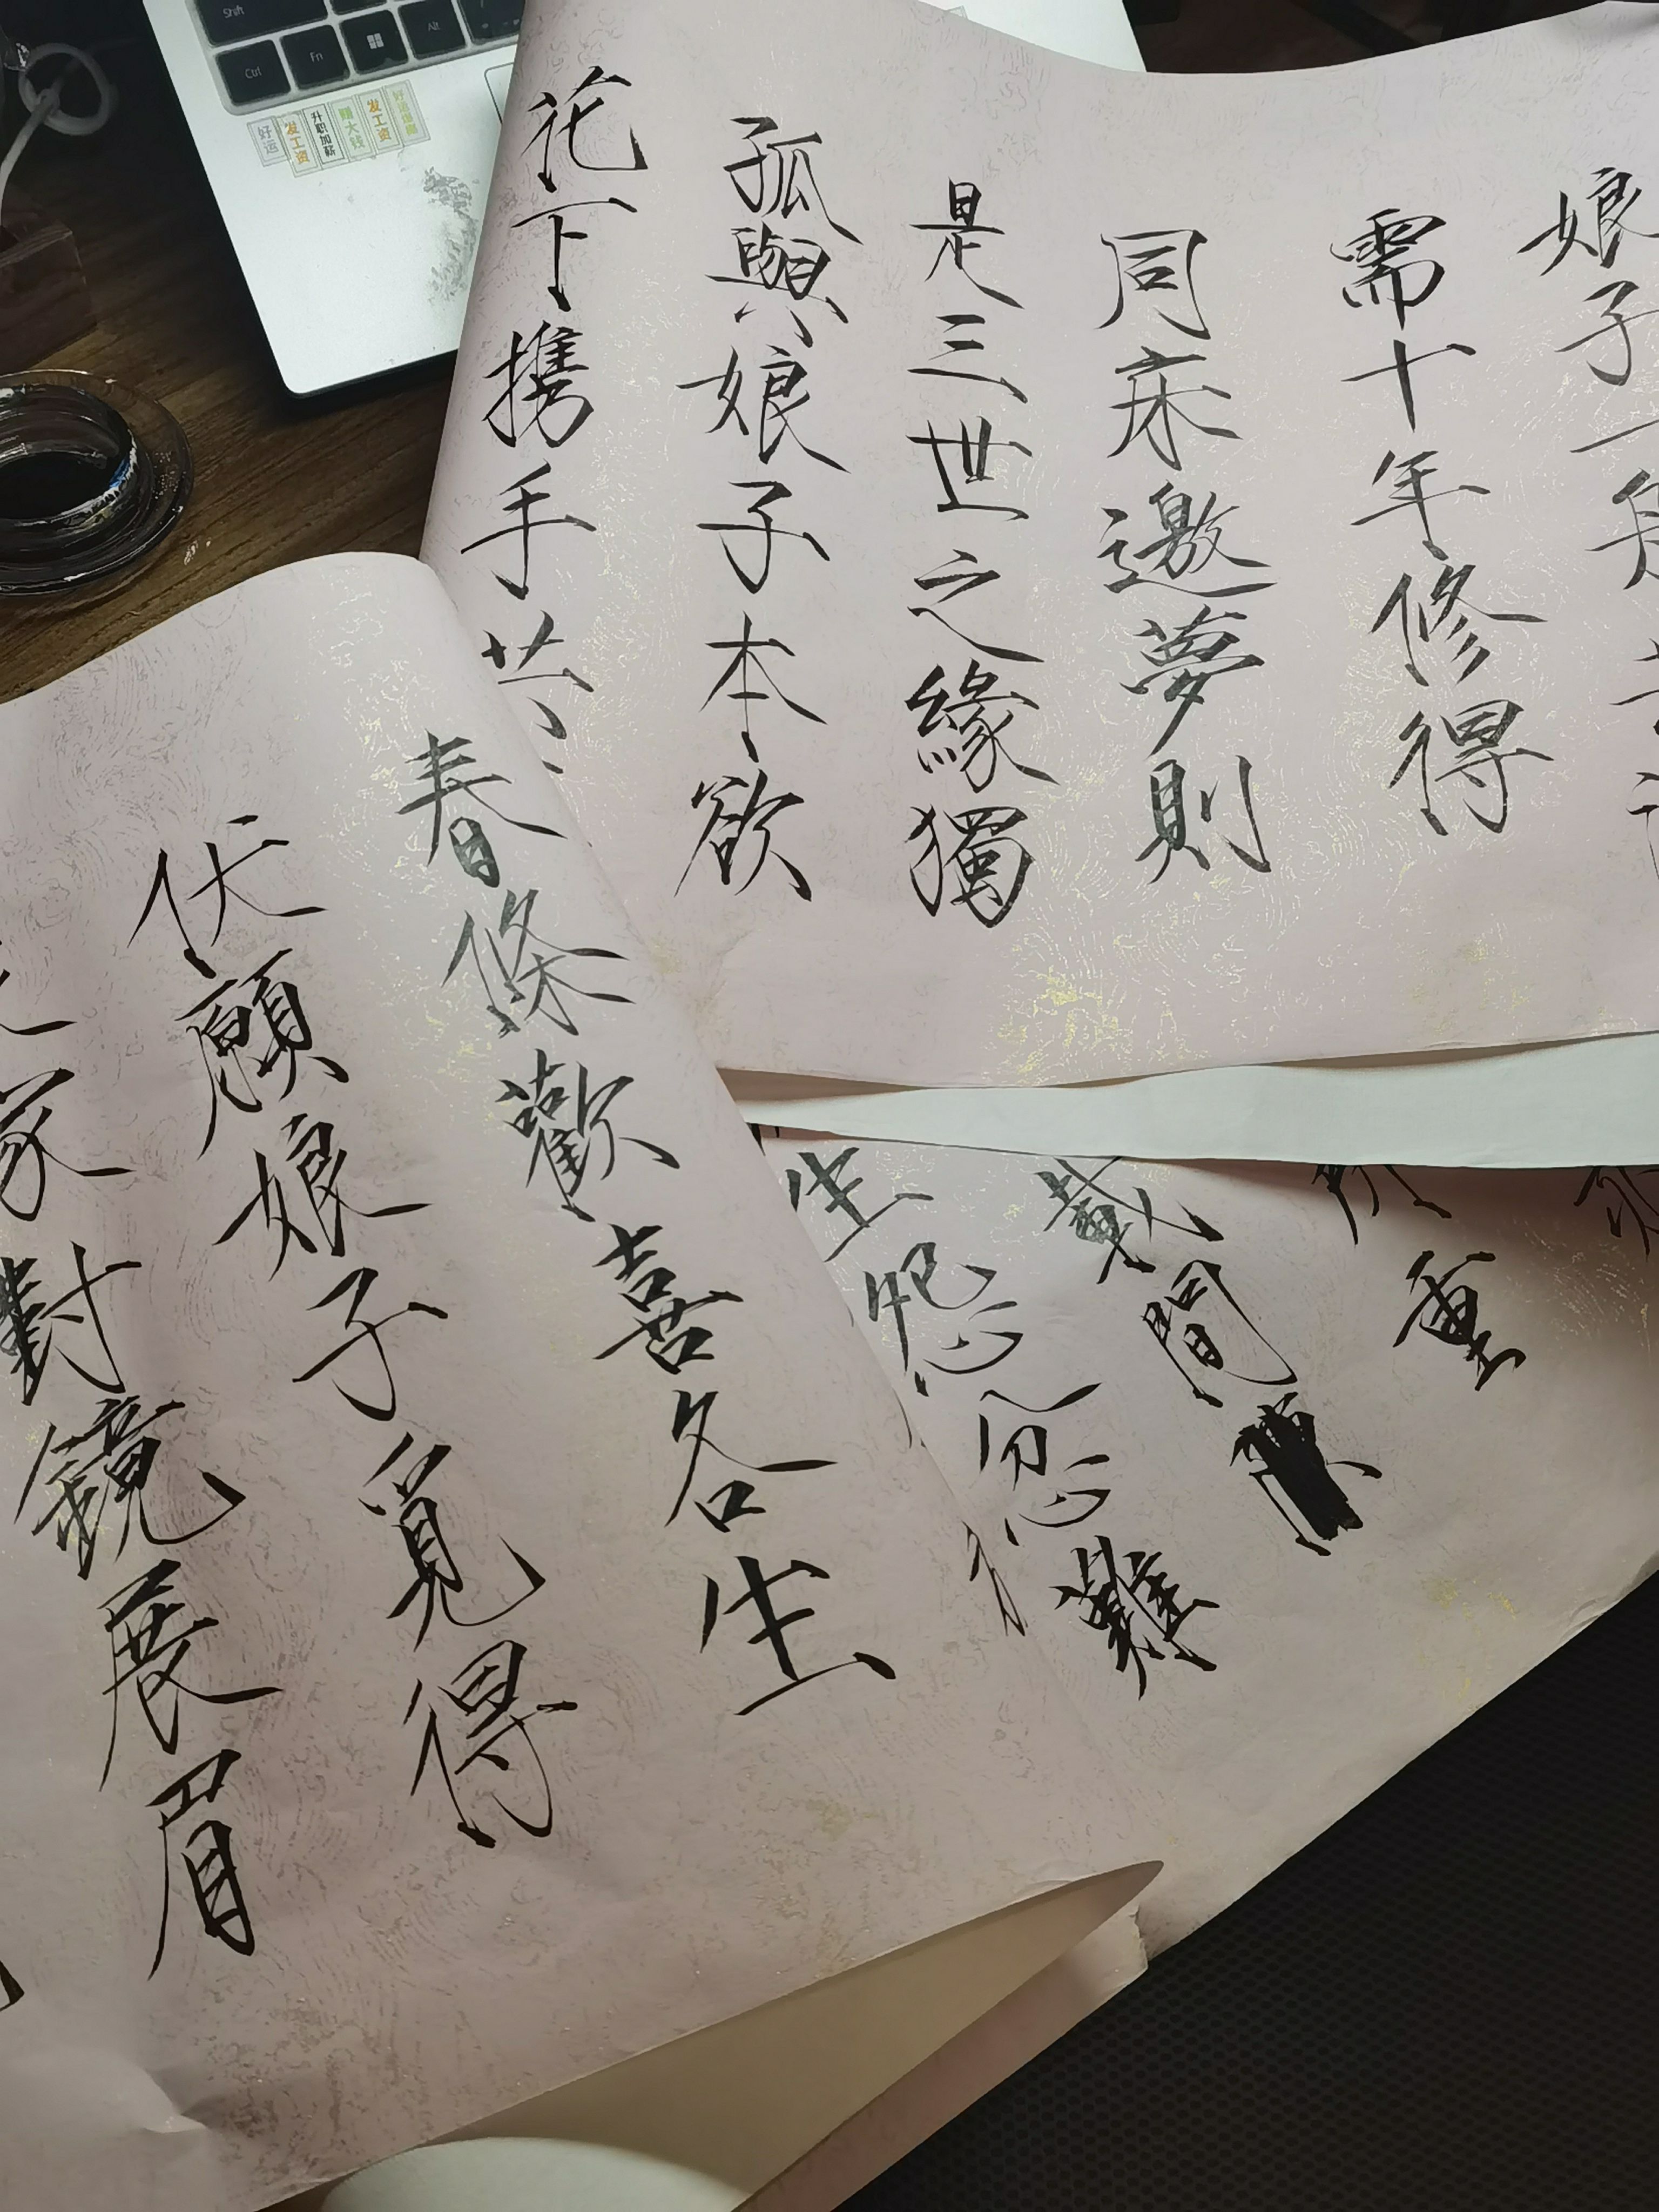 Shift
Ctrl
Fn
Alt
好运
发工资
升职加薪
赚大钱
发工资
娘子一
需十年修得
同床邀夢則
是三世之緣獨
孤與娘子本欲
花下携手共
重
載間
生怨
忽難
春條歡喜各生
伏願娘子覓得
家對鏡展眉